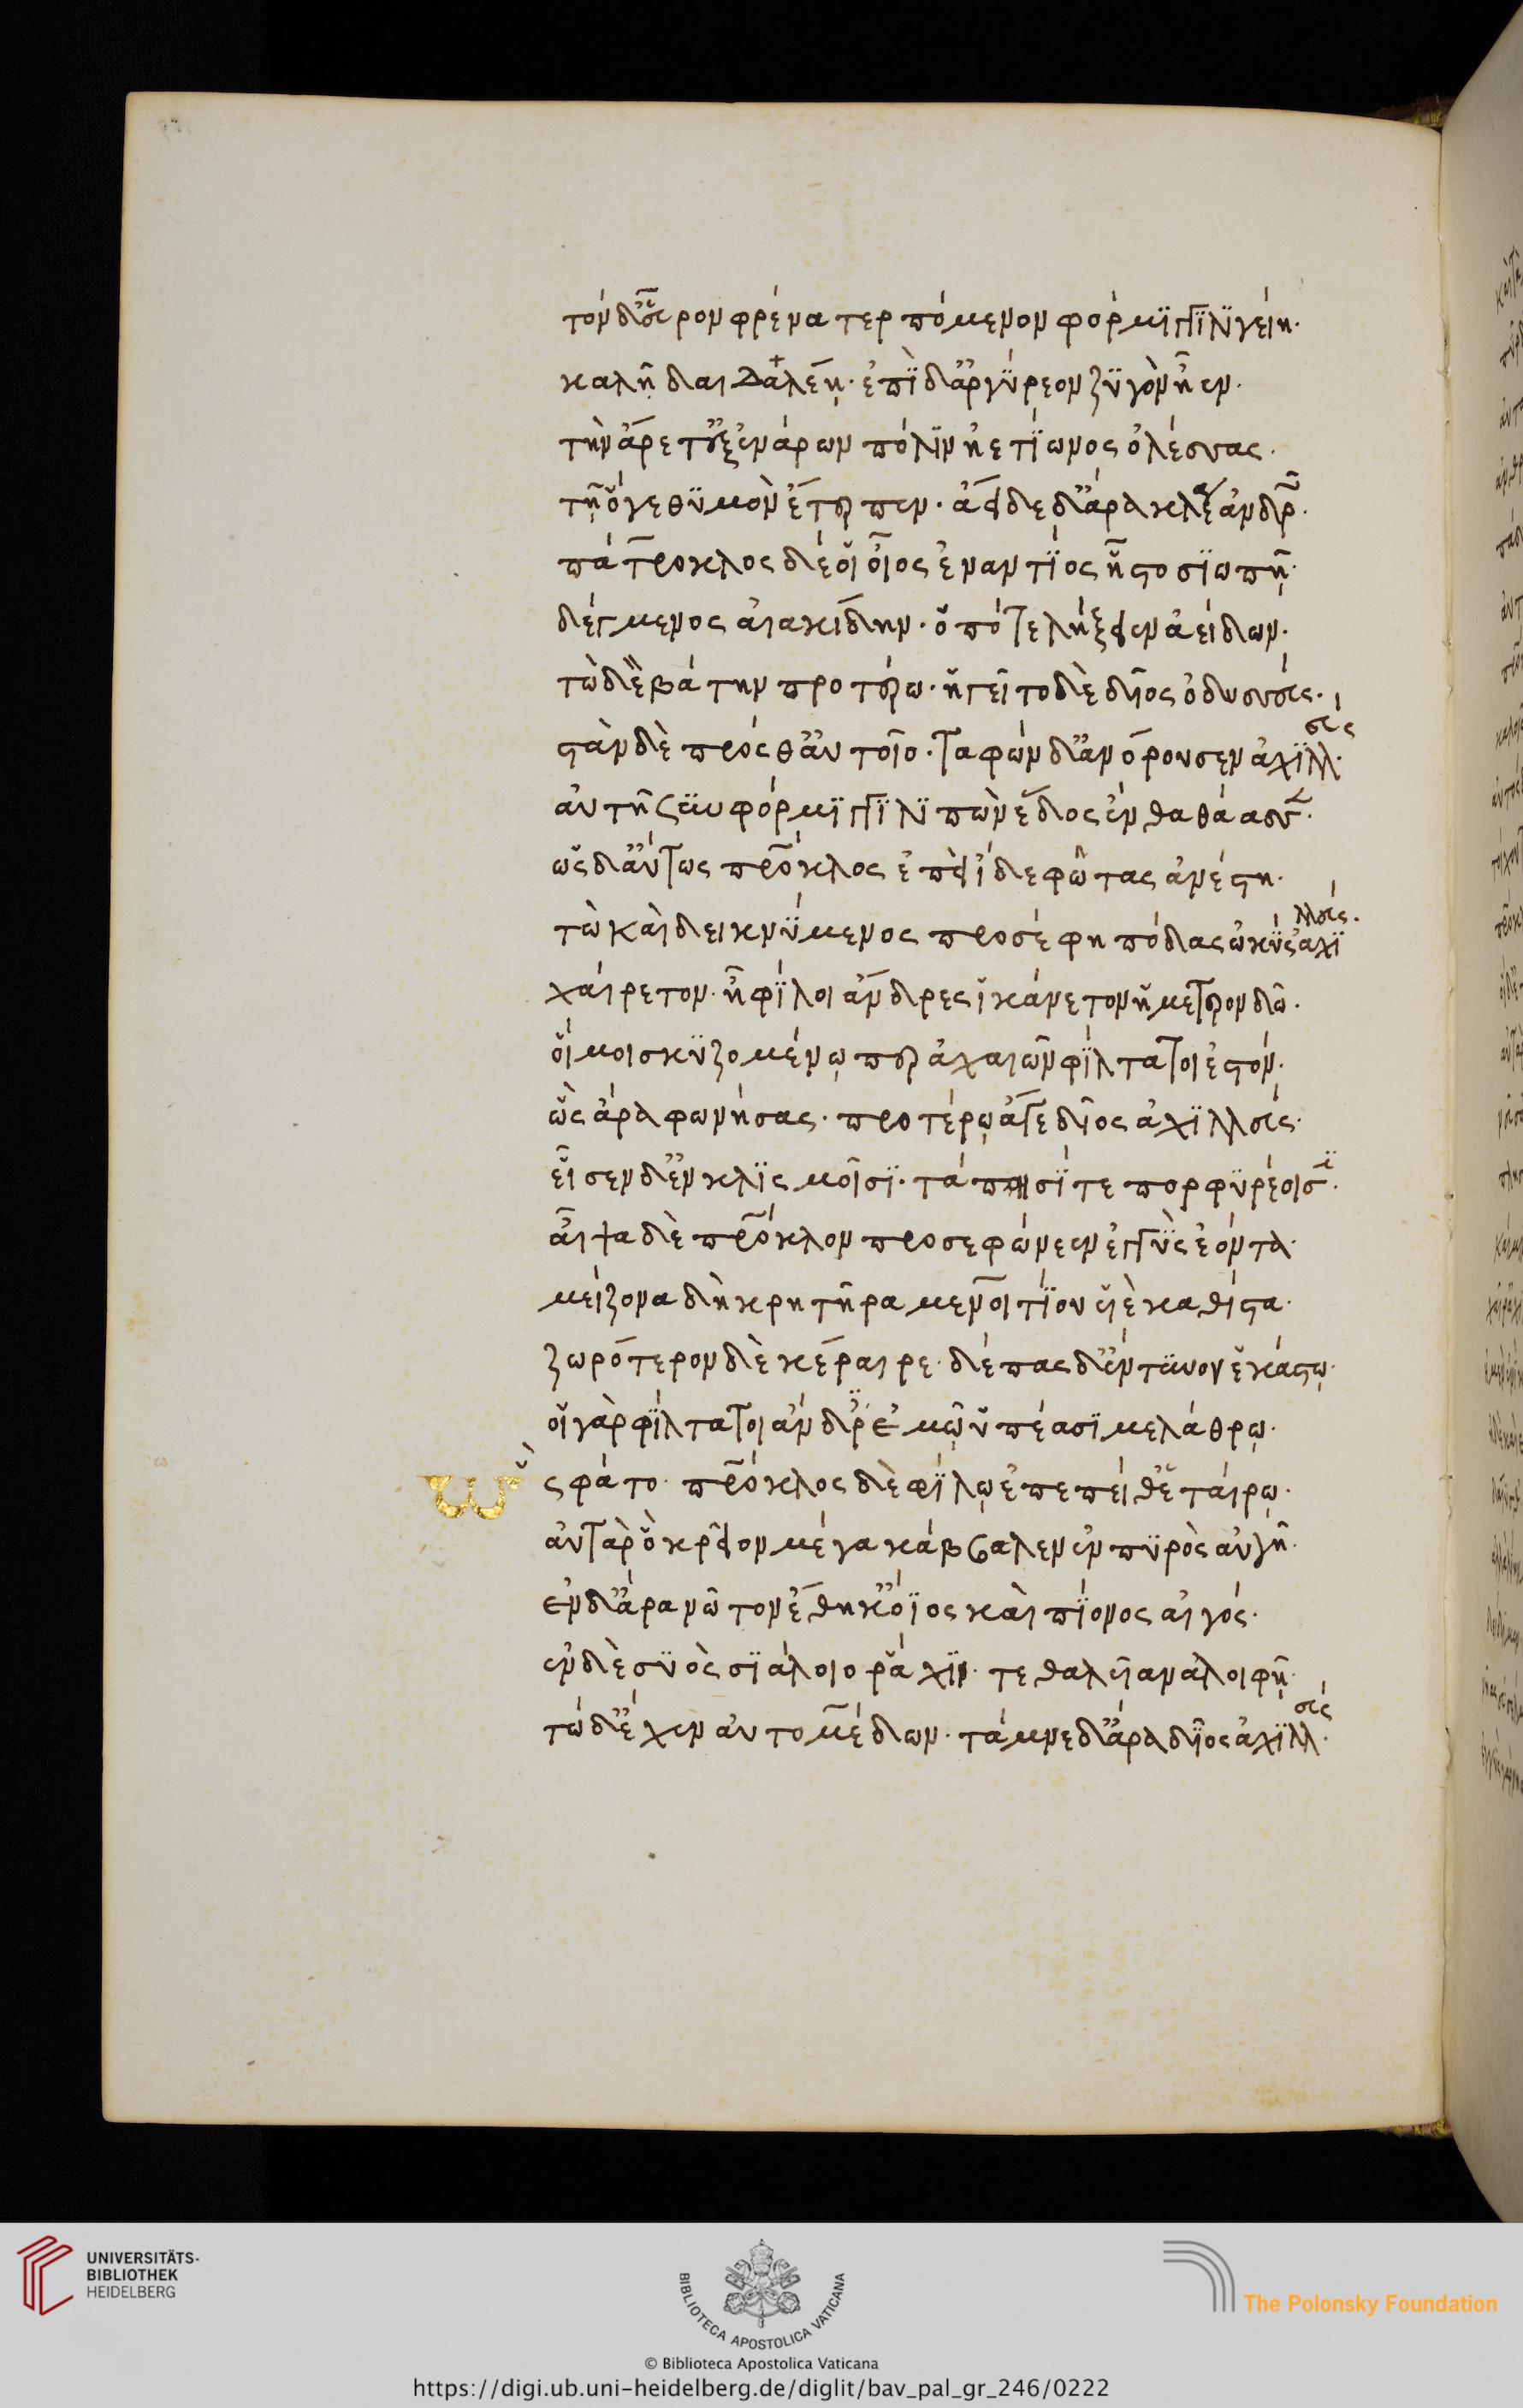 τὸν δ' εὗρον φρένα τερπόμενον φόρμιγγι λιγείῃ.
καλῇ δαιδαλέῃ. ἐπὶ δ' ἀργύρεον ζυγὸν ἦεν.
τὴν ἄρετ' ἐξ ἐνάρων πόλιν ἠετίωνος ὀλέσσας.
τῇ ὅγε θυμὸν ἔτερπεν. ἄειδε δ' ἄρα κλέα ἀνδρῶν.
πάτροκλος δέ οἱ οἶος ἐναντίος ἧστο σιωπῇ.
δέγμενος αἰακίδην. ὁπότε λήξειεν ἀείδων.
τὼ δὲ βάτην προτέρω. ἡγεῖτο δὲ δῖος ὀδυσσεύς.
στὰν δὲ πρόσθ' αὐτοῖο. ταφὼν δ' ἀνόρουσεν ἀχιλλεύς.
αὐτῇ σὺν φόρμιγγι λιπὼν ἕδος ἔνθα θάασσεν.
ὣς δ' αὔτως πάτροκλος ἐπεὶ ἴδε φῶτας ἀνέστη.
τὼ καὶ δεικνύμενος προσέφη πόδας ὠκὺς ἀχιλλεύς.
χαίρετον. ἦ φίλοι ἄνδρες ἱκάνετον ἡμέτερον δῶ.
οἵ μοι σκυζομένῳ περ ἀχαιῶν φίλτατοι ἐστόν.
ὣς ἄρα φωνήσας. προτέρω ἄγε δῖος ἀχιλλεύς.
εἷσεν δ' ἐν κλισμοῖσι. τάπησί τε πορφυρέοισι.
αἶψα δὲ πάτροκλον προσεφώνεεν ἐγγὺς ἐόντα.
μείζονα δὴ κρητῆρα μενοιτίου υἱὲ καθίστα.
ζωρότερον δὲ κέραιρε. δέπας δ' ἔντυνον ἑκάστῳ.
οἳ γὰρ φίλτατοι ἄνδρες ἐμῷ ὑπέασι μελάθρῳ.
ὣς φάτο. πάτροκλος δὲ φίλῳ ἐπεπείθεθ' ἑταίρῳ.
αὐτὰρ ὃ κρεῖον μέγα κάββαλεν ἐν πυρὸς αὐγῇ.
ἐν δ' ἄρα νῶτον ἔθηκ' ὄϊος καὶ πίονος αἰγός.
ἐν δὲ συὸς σιάλοιο ῥάχιν. τεθαλυῖαν ἀλοιφῇ.
τῷ δ' ἔχεν αὐτομέδων. τάμνε δ' ἄρα δῖος ἀχιλλεύς.
UNIVERSITÄTS-
BIBLIOTHEK
HEIDELBERG
BIBLIOTECA APOSTOLICA VATICANA
The Polonsky Foundation
© Biblioteca Apostolica Vaticana
https://digi.ub.uni-heidelberg.de/diglit/bav_pal_gr_246/0222